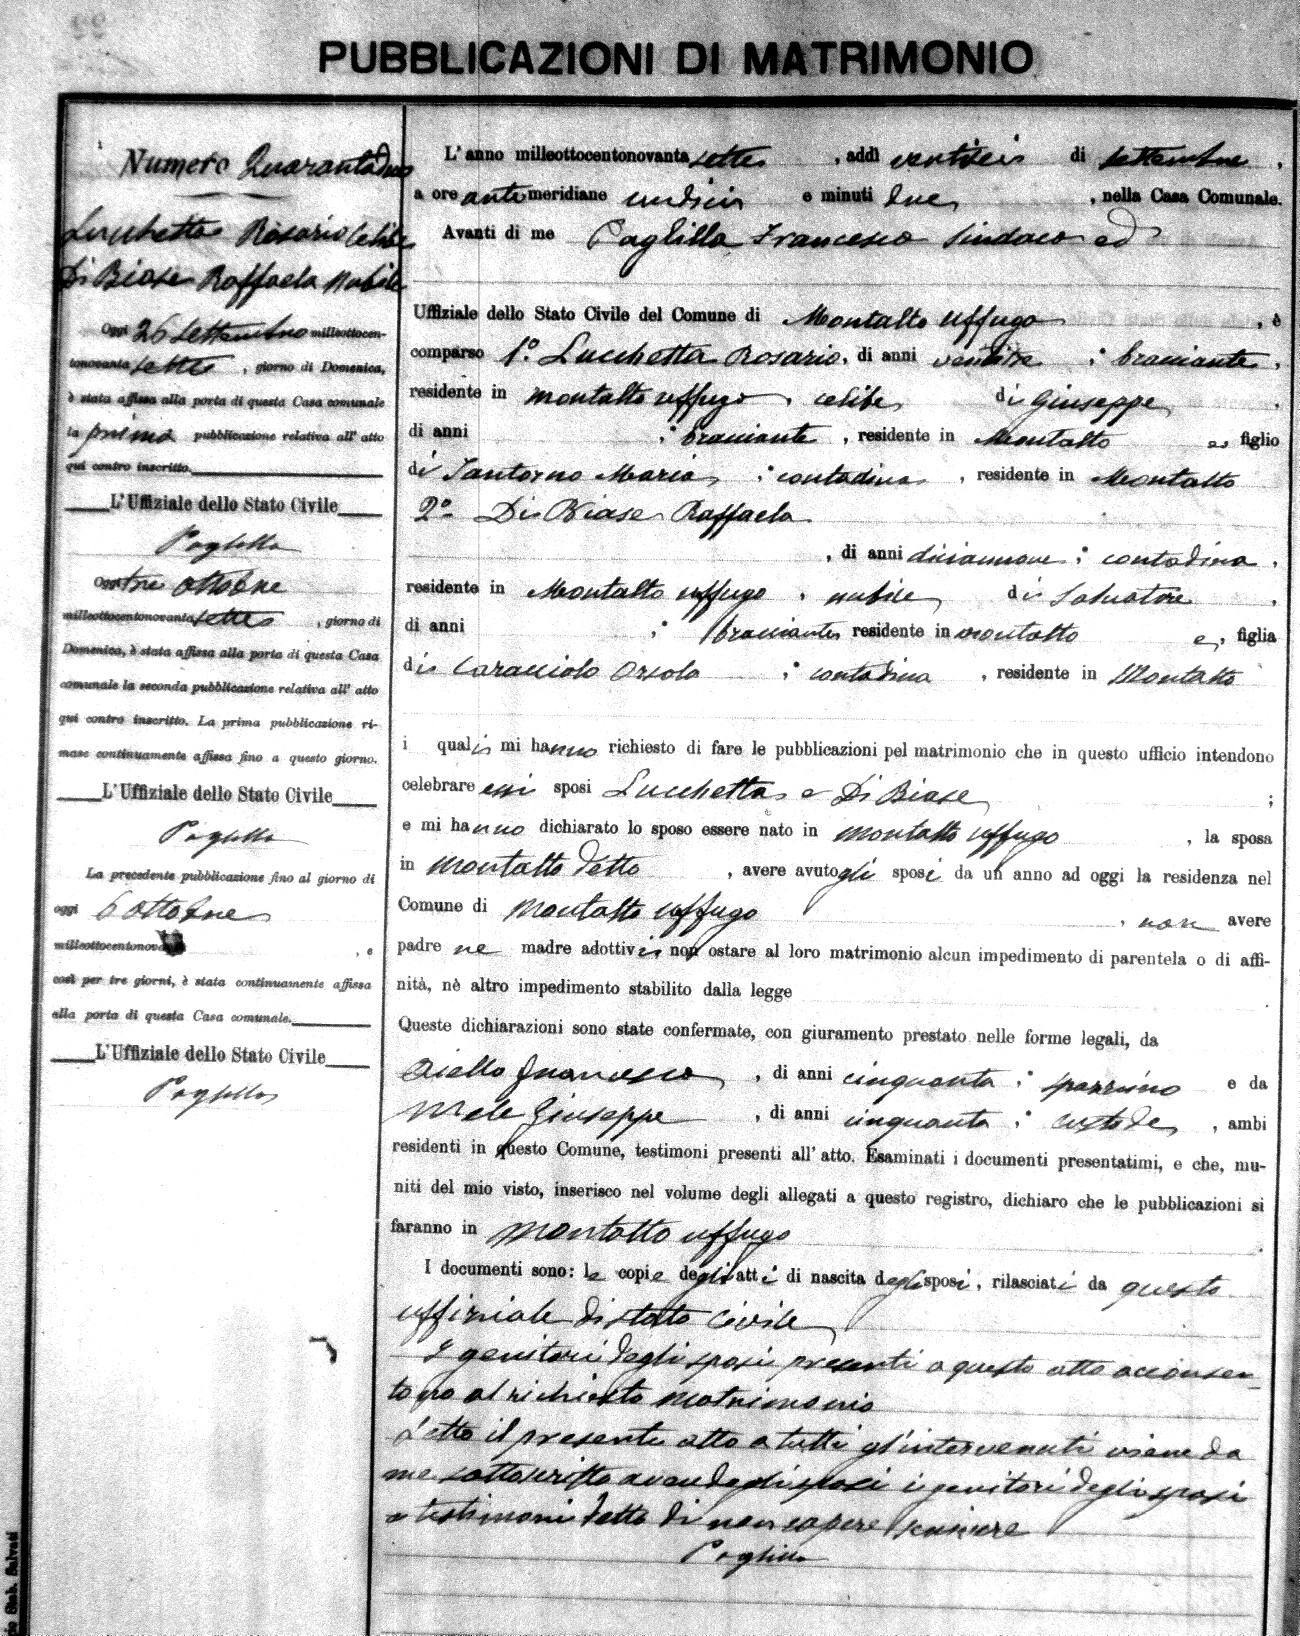 PUBBLICAZIONI DI MATRIMONIO
Numero Quarantadue
Lucchetta Rosario celibe
Di Biase Raffaela nubile
Oggi 26 Settembre milleottocen-
tonovanta sette, giorno di Domenica,
è stata affissa alla porta di questa Casa comunale
la prima pubblicazione relativa all' atto
qui contro inscritto.
L'Uffiziale dello Stato Civile
Paglilla
Oggi tre ottobre
milleottocentonovanta sette, giorno di
Domenica, è stata affissa alla porta di questa Casa
comunale la seconda pubblicazione relativa all' atto
qui contro inscritto. La prima pubblicazione ri-
mase continuamente affissa fino a questo giorno.
L'Uffiziale dello Stato Civile
Paglilla
La precedente pubblicazione fino al giorno di
oggi 6 ottobre
milleottocentonovanta , e
così per tre giorni, è stata continuamente affissa
alla porta di questa Casa comunale.
L'Uffiziale dello Stato Civile
Paglilla
L' anno milleottocentonovanta sette , addì ventisei di settembre ,
a ore anti meridiane undici e minuti due , nella Casa Comunale.
Avanti di me Paglilla Francesco Sindaco ed
Uffiziale dello Stato Civile del Comune di Montalto Uffugo , è
comparso 1.° Lucchetta Rosario, di anni ; bracciante ,
residente in Montalto uffugo , celibe di Giuseppe ,
di anni ; bracciante , residente in Montalto e, figlio
di Santorno Maria ; contadina , residente in Montalto
2° Di Biase Raffaela
, di anni diciannove ; contadina ,
residente in Montalto uffugo , nubile di Salvatore ,
di anni ; bracciante residente in Montalto e, figlia
di Caracciolo Orsola ; contadina , residente in Montalto
i quali mi hanno richiesto di fare le pubblicazioni pel matrimonio che in questo ufficio intendono
celebrare essi sposi Lucchetta e Di Biase ;
e mi hanno dichiarato lo sposo essere nato in Montalto uffugo , la sposa
in Montalto detto , avere avuto gli sposi da un anno ad oggi la residenza nel
Comune di Montalto uffugo , non avere
padre ne madre adottivi non ostare al loro matrimonio alcun impedimento di parentela o di affi-
nità, nè altro impedimento stabilito dalla legge
Queste dichiarazioni sono state confermate, con giuramento prestato nelle forme legali, da
Aiello Francesco , di anni cinquanta ; spazzino e da
Mele Giuseppe , di anni cinquanta ; custode , ambi
residenti in questo Comune, testimoni presenti all' atto. Esaminati i documenti presentatimi, e che, mu-
niti del mio visto, inserisco nel volume degli allegati a questo registro, dichiaro che le pubblicazioni si
faranno in Montalto uffugo
I documenti sono: le copie degli atti di nascita degli sposi, rilasciati da questo
uffiziale di stato civile
I genitori degli sposi presenti a questo atto acconsen-
tono al richiesto matrimonio
Letto il presente atto a tutti gl'intervenuti viene da
me sottoscritto avendo gli sposi i genitori degli sposi
e testimoni detto di non sapere scrivere
Paglilla